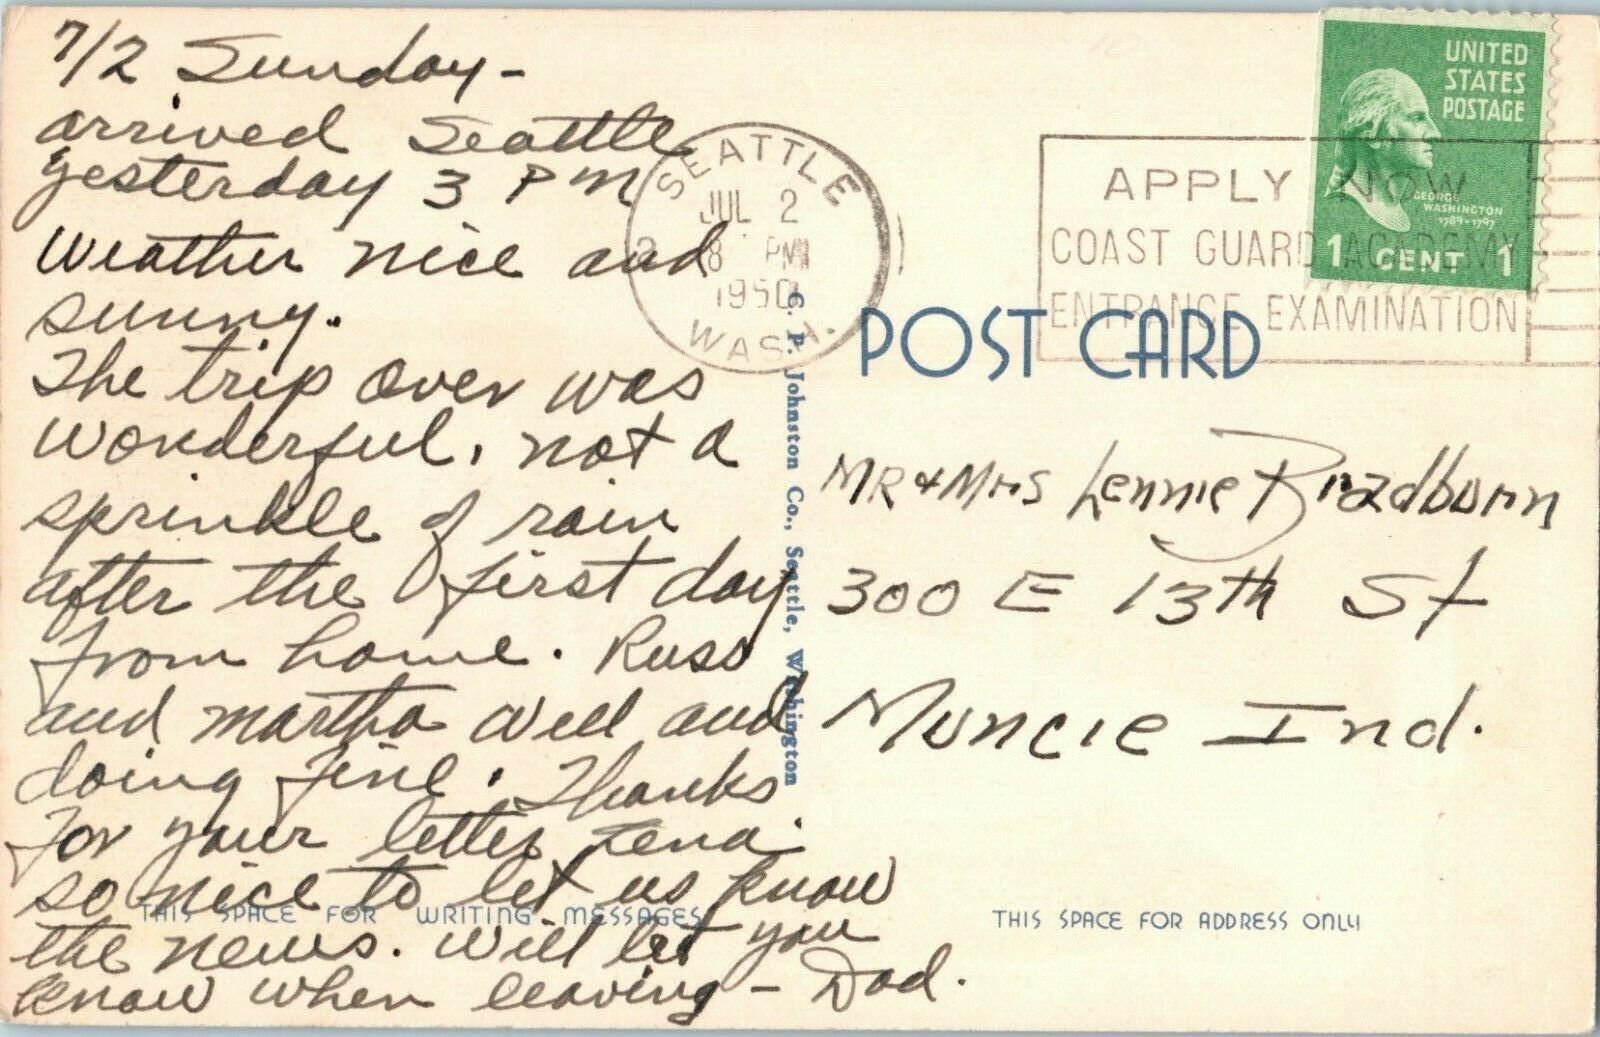 7/2 Sunday -
arrived Seattle
yesterday 3 PM
Weather nice and
sunny.
The trip over was
wonderful, not a
sprinkle of rain
after the first day
from home. Russ
and Martha well and
doing fine. Thanks
for your letter Lena.
so nice to let us know
the news. Will let you
know when leaving - Dad.
THIS SPACE FOR WRITING MESSAGES
SEATTLE
JUL 2
8 PM
1950
WASH.
C. P. Johnston Co., Seattle, Washington
APPLY NOW
COAST GUARD ACADEMY
ENTRANCE EXAMINATION
UNITED
STATES
POSTAGE
GEORGE
WASHINGTON
1789-1797
1 CENT 1
POST CARD
MR & MRS Lennie Bradburn
300 E 13th St
Muncie Ind.
THIS SPACE FOR ADDRESS ONLY